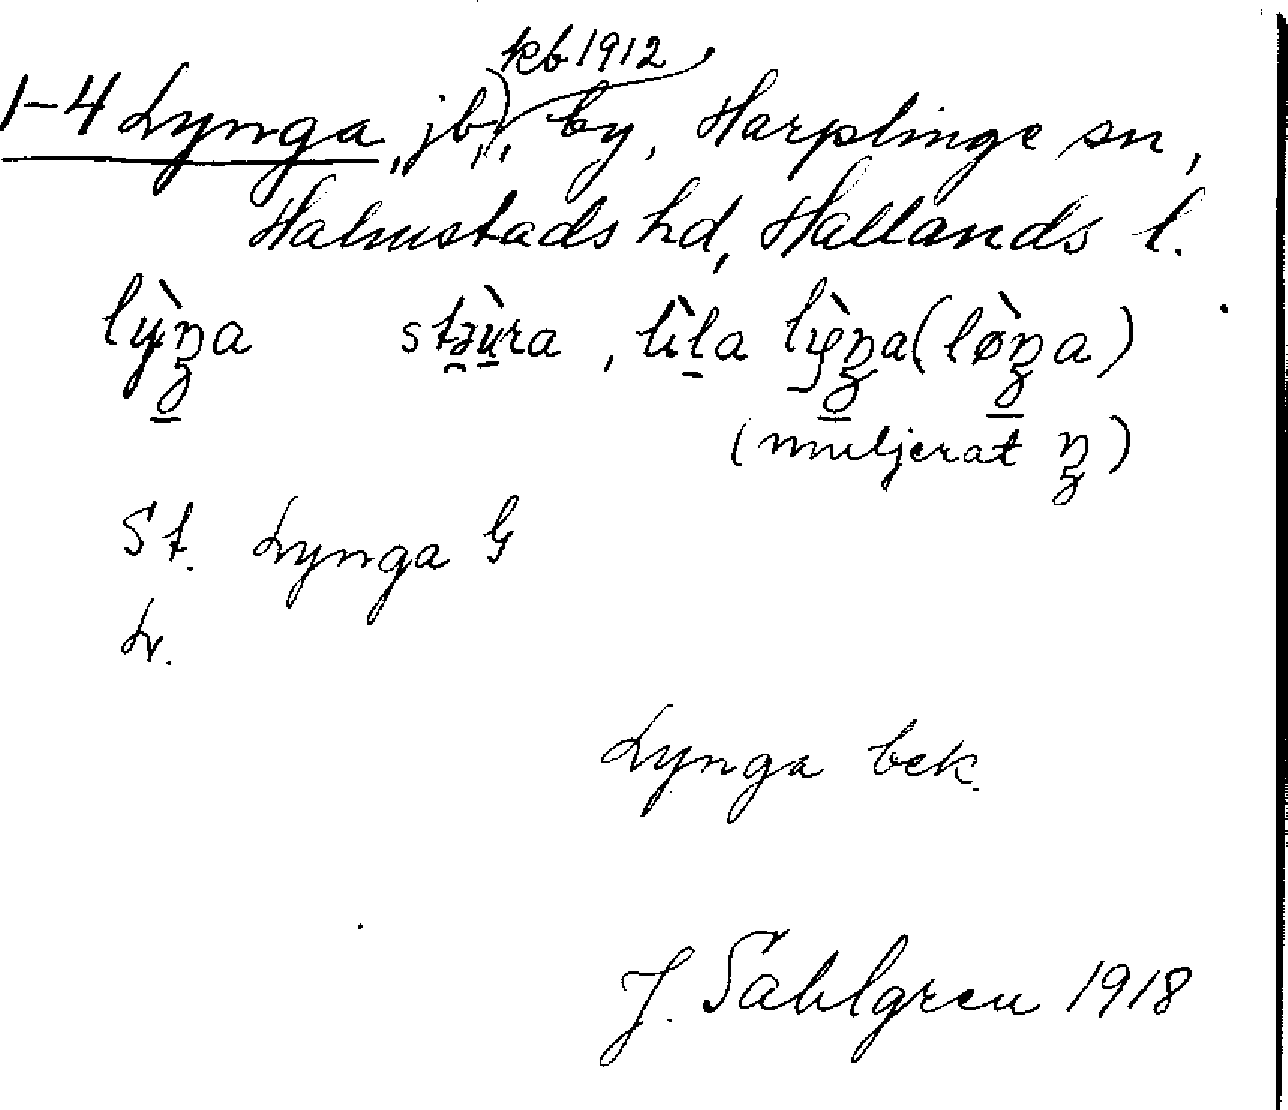 kb 1912
1-4 Lynga, jb), by, Harplinge sn,
Halmstads hd, Hallands l.
lỳŋa stəùra, lìla lỳŋa (lø̀ŋa)
(muljerat ŋ)
St. Lynga G
L.
Lynga bek.
J. Sahlgren 1918